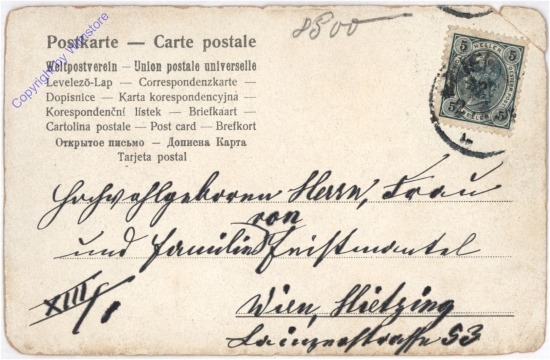 8500
Postkarte — Carte postale
Weltpostverein — Union postale universelle
Levelező-Lap — Correspondenzkarte —
Dopisnice — Karta korespondencyjna —
Korespondenční lístek — Briefkaart —
Cartolina postale — Post card — Brefkort
Открытое письмо — Дописна Карта
Tarjeta postal
5 5
5 5
Hochwohlgeboren Herrn, Frau
und Familie von Feistmantel
XIII/1
Wien, Hietzing
Lainzerstrasse 53
Copyright by Wienstore